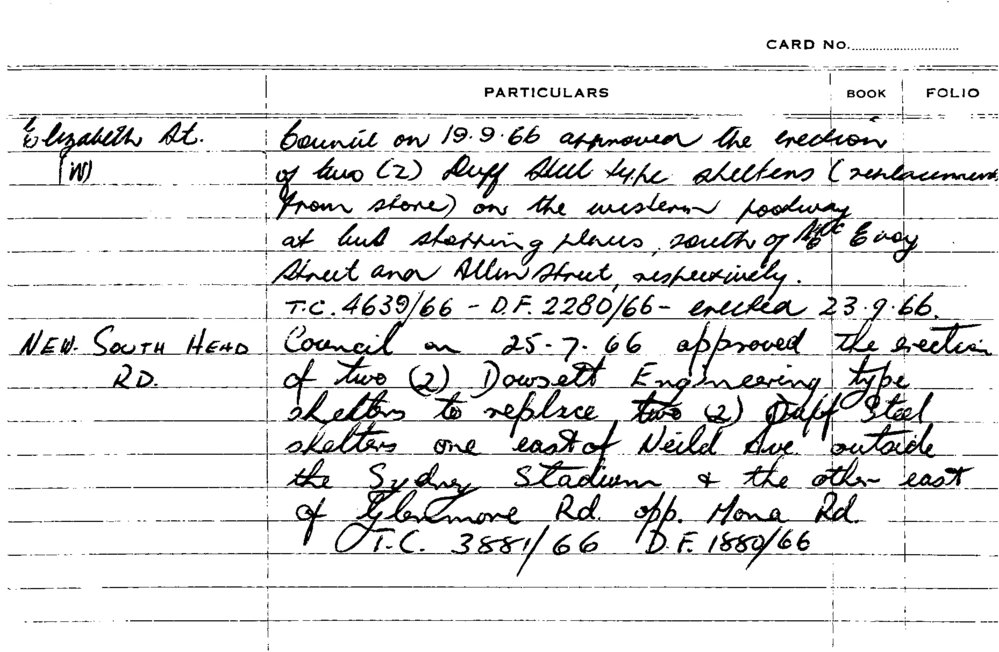 CARD No.
PARTICULARS BOOK FOLIO
Elizabeth St. Council on 19.9.66 approved the erection
(W) of two (2) Duff Steel type shelters (replacements
from store) on the western footway
at bus stopping places, south of McEvoy
Street and Allen Street, respectively.
T.C. 4639/66 - D.F. 2280/66 - erected 23.9.66.
NEW SOUTH HEAD Council on 25-7.66 approved the erection
RD. of two (2) Dowsett Engineering type
shelters to replace two (2) Duff Steel
shelters one east of Neild Ave outside
the Sydney Stadium & the other east
of Glenmore Rd. opp. Mona Rd.
T.C. 3881/66 D.F. 1880/66